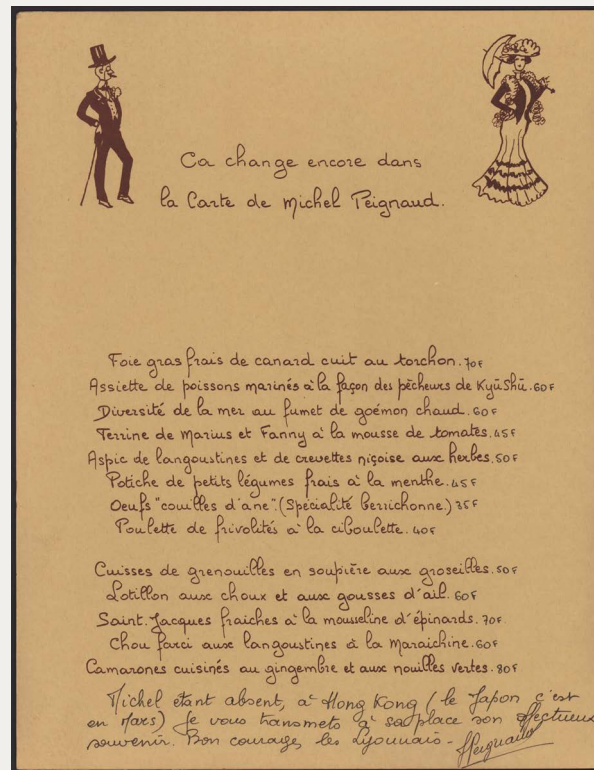 Ca change encore dans
la Carte de Michel Peignaud.
Foie gras frais de canard cuit au torchon. 70F
Assiette de poissons marinés à la façon des pêcheurs de KyūShū. 60F
Diversité de la mer au fumet de goémon chaud. 60F
Terrine de Marius et Fanny à la mousse de tomates. 45F
Aspic de langoustines et de crevettes niçoise aux herbes. 50F
Potiche de petits légumes frais à la menthe. 45F
Oeufs "couilles d'ane". (Spécialité berrichonne.) 35F
Poulette de frivolités à la ciboulette. 40F
Cuisses de grenouilles en soupière aux groseilles. 50F
Lotillon aux choux et aux gousses d'ail. 60F
Saint. Jacques fraiches à la mousseline d'épinards. 70F
Chou farci aux langoustines à la Maraichine. 60F
Camarones cuisinés au gingembre et aux nouilles vertes. 80F
Michel étant absent, à Hong Kong (le Japon c'est
en Mars) Je vous transmets à sa place son affectueux
souvenir. Bon courage, les Lyonnais -